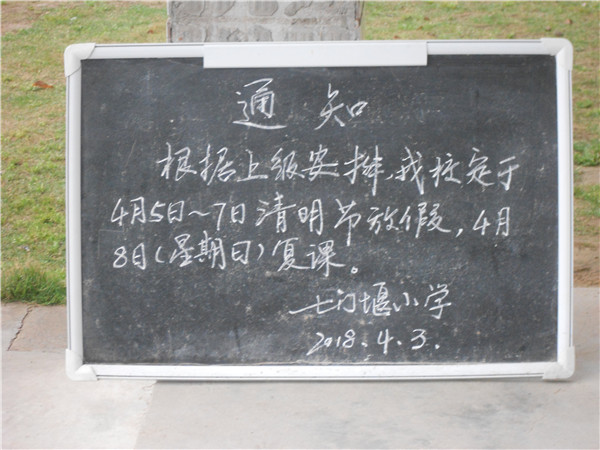 通知
根据上级安排,我校定于
4月5日~7日清明节放假,4月
8日(星期日)复课。
七门堰小学
2018.4.3.